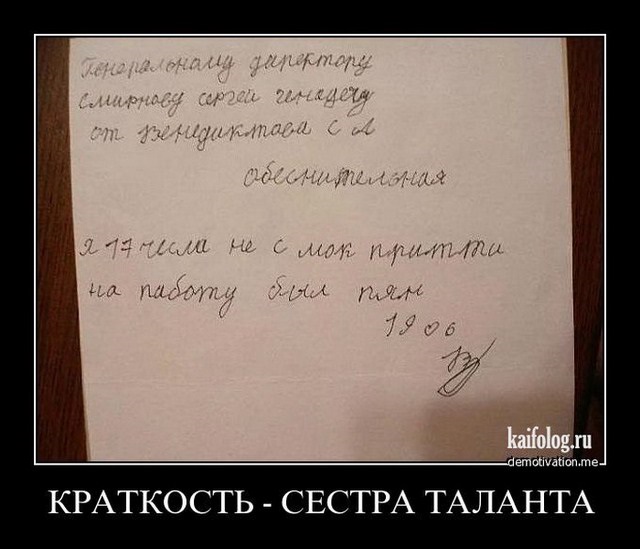 Генеральному директору
смирнову сергей генадечу
от Венедиктова с А
обеснительная
я 17 числа не с мок притти
на работу был пян
19 06
kaifolog.ru
demotivation.me
КРАТКОСТЬ - СЕСТРА ТАЛАНТА